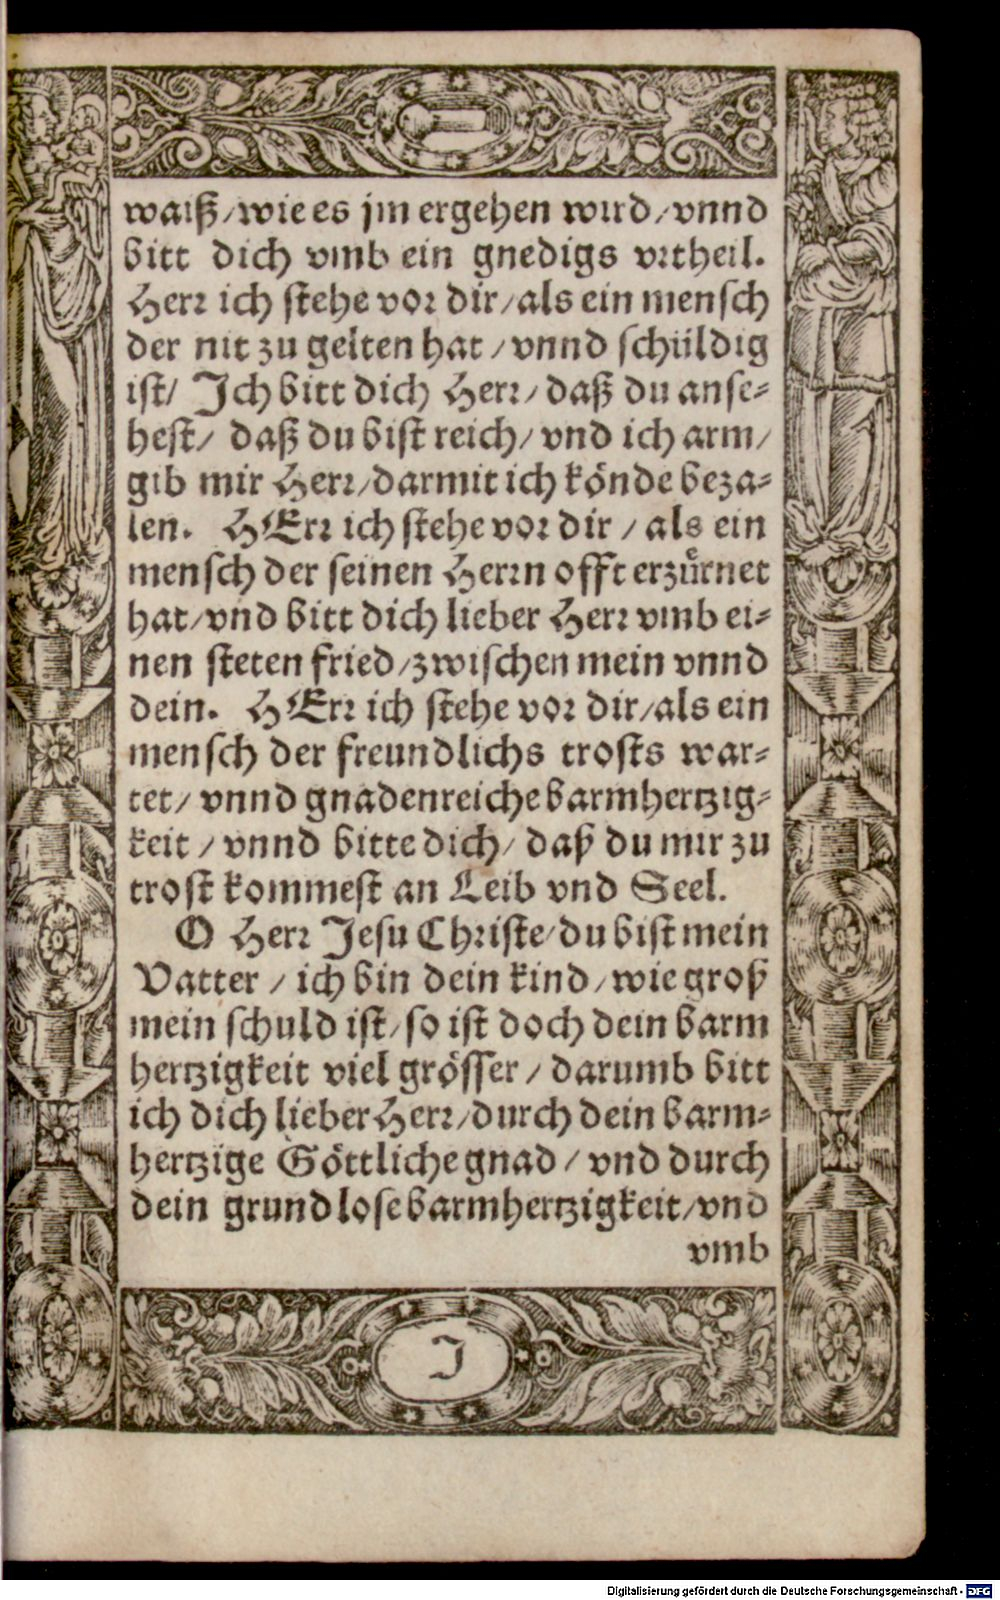 waiß/wie es jm ergehen wird/vnnd
bitt dich vmb ein gnedigs vrtheil.
Herr ich stehe vor dir/als ein mensch
der nit zu gelten hat/vnnd schüldig
ist/ Ich bitt dich Herr/daß du anse-
hest/ daß du bist reich/vnd ich arm/
gib mir Herr/darmit ich könde beza-
len. HErr ich stehe vor dir/als ein
mensch der seinen Herrn offt erzürnet
hat/vnd bitt dich lieber Herr vmb ei-
nen steten fried/zwischen mein vnnd
dein. HErr ich stehe vor dir/als ein
mensch der freundlichs trosts war-
tet/ vnnd gnadenreiche barmhertzig-
keit/ vnnd bitte dich/daß du mir zu
trost kommest an Leib vnd Seel.
O Herr Jesu Christe/du bist mein
Vatter/ich bin dein kind/wie groß
mein schuld ist/so ist doch dein barm
hertzigkeit viel grösser/darumb bitt
ich dich lieber Herr/durch dein barm-
hertzige Göttliche gnad/vnd durch
dein grundlose barmhertzigkeit/vnd
vmb
I
Digitalisierung gefördert durch die Deutsche Forschungsgemeinschaft - DFG